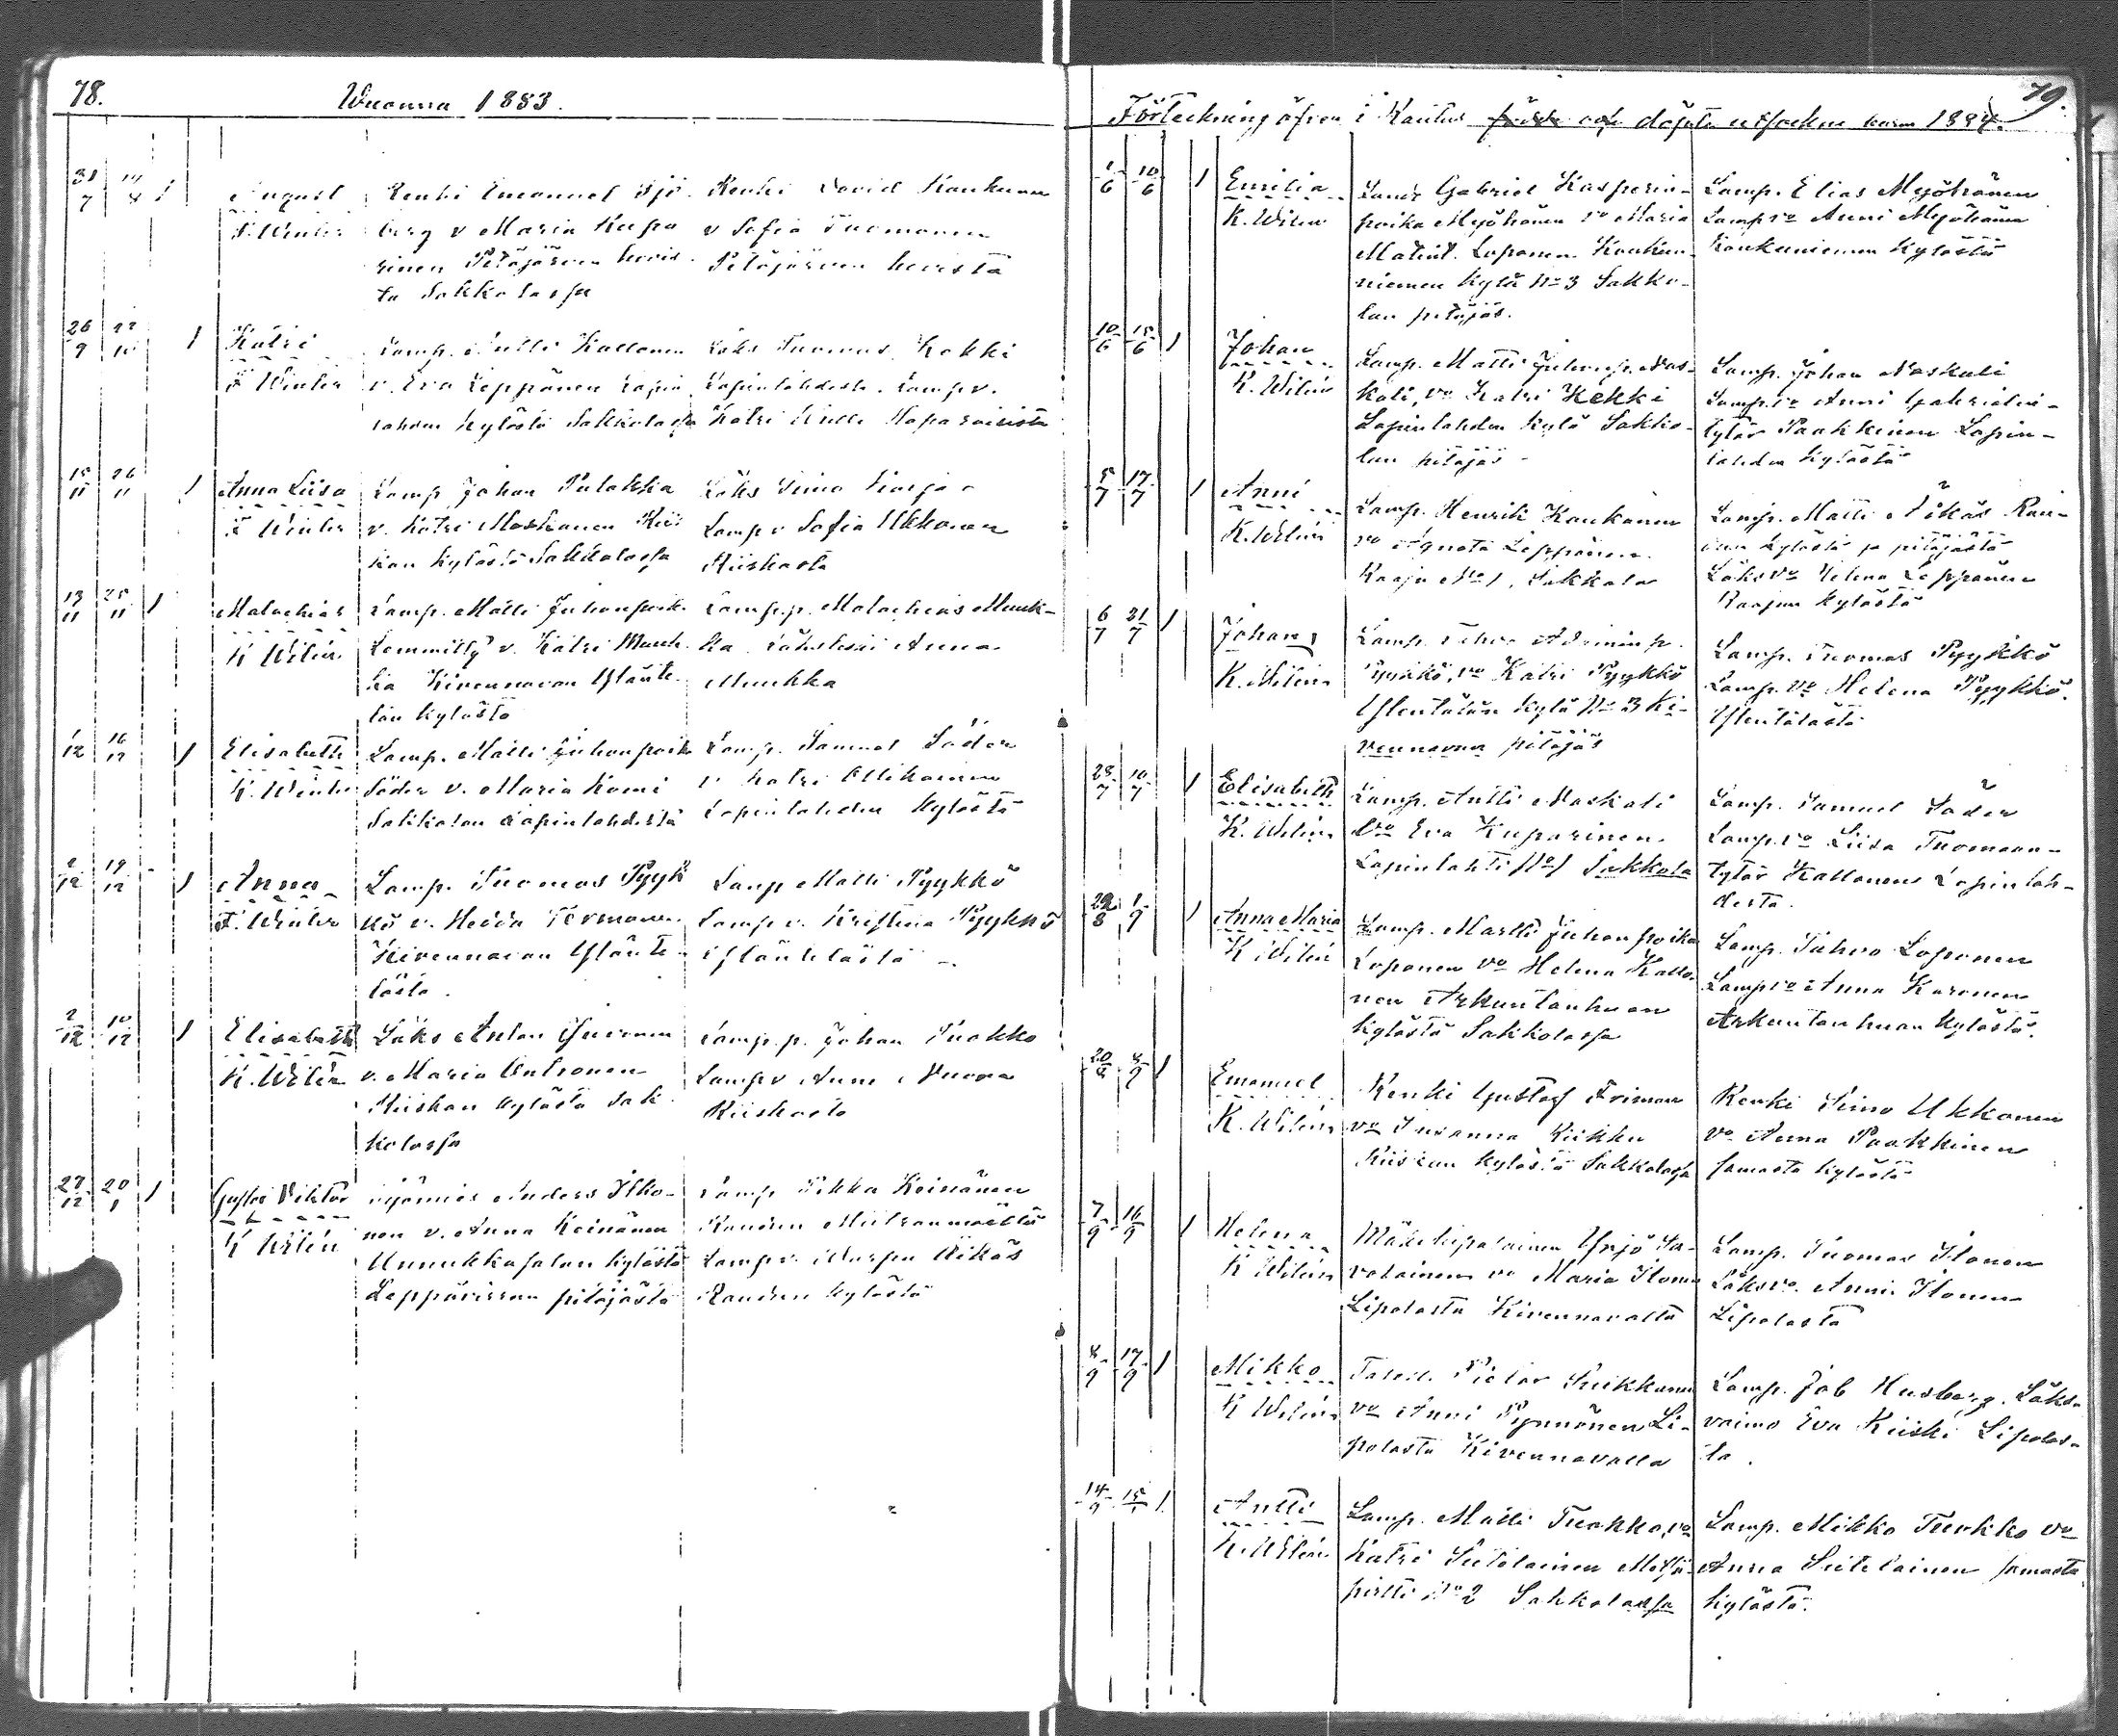 78.
Wuonna 1883.
31/7 14/8 1
August
F. Winter
Renki Emanuel Sjö-
berg v Maria Kupa
rinen Petäjärven hovis-
ta Sakkolassa
Renki David Kaukunen
v Sofia Tuomanen
Petäjärven hovista
26/9 22/10 1
Katri
F Winter
Lamp. Antti Kallonen
v. Eva Leppänen Lapin
lahden kylästä Sakkolassa
Läks Tuomas Kekki
Lapinlahdesta. Lamp v.
Katri
15/11 26/11 1
Anna Liisa
F Winter
Lamp Johan Pulakka
v. Katri Moskanen Kii-
kan kylästä Sakkolassa
Läks Simo
Lamp v Sofia Ukkonen
Kiiskasta
13/11 25/11 1
Malachias
K Wilén
Lamp. Matti Juhonpoik.
Lemmitty v. Katri Muuk-
ka Kivennavan Yläntä-
län kylästä
Lamp.p. Malachias Muuk-
ka Anna
Muukka
1/12 16/12 1
Elisabeth
K. Winter
Lamp. Matti Juhonpoik
Söder v. Maria Komi
Sakkolan Lapinlahdesta
Lamp. Samuel Söder
v Katri Ollikainen
Lapinlahden kylästä
2/12 19/12 1
Anna
F. Winter
Lamp. Tuomas Pyyk
kö v. Hedda Termonen
Kivennavan Yläntä-
lästä.
Lamp Matti Pyykkö
Lamp v. Kristina Pyykkö
Yläntälästä
2/12 10/12 1
Elisabeth
K. Wilén
Läks Anton
v. Maria Antonen
Kiiskan kylästä Sak
kolassa
Lamp. p. Johan Tuokko
Lamp v Anni
Kiiskasta
27/12 20/1 1
Gustaf Viktor
K Wilén
Työmies Anders Ilko-
nen v. Anna Keinänen
Unnukkasalon kylästä
Leppävirran pitäjästä
Lamp Pekka Keinänen
Raudun
Lamp v.
Raudun kylästä
79.
Förteckning öfver i Rautus födde och döpta utsockne barn 1884.
1/6 10/6 1
Emilia
K. Wilén
Lamp Gabriel Kasperin-
poika Myöhänen vo Maria
Matint. Loponen Kaukin-
niemen kylä No 3 Sakko-
lan pitäjäs.
Lamp. Elias Myöhänen
Lamp vo Anni Myöhänen
Kaukuniemen kylästä
10/6 15/6 1
Johan
K. Wilén
Lamp. Matti Juhonp. Nas-
kali, vo Katri Kekki
Lapinlahden kylä Sakko-
lan pitäjäs
Lamp. Johan Naskali
Lamp. vo Anni Gabrielin-
tytär Paakkinen Lapin-
lahden kylästä
5/7 17/7 1
Anni
K. Wilén
Lamp. Henrik Kaukonen
vo Agneta Leppänen
Raaju No 1, Sakkola
Lamp. Matti Wikäs Rau-
dun kylästä ja pitäjästä
Läks vo Helena Leppänen
Raajun kylästä
6/7 21/7 1
Johan
K. Wilén
Lamp. Tahvo Adaminp.
Pyykkö, vo Katri Pyykkö
Yläntälän kylä No 3 Ki-
vennavan pitäjäs
Lamp. Tuomas Pyykkö
Lamp. vo Helena Pyykkö.
Yläntälästä
28/7 10/7 1
Elisabeth
K. Wilén
Lamp. Antti Naskali
vo Eva Kuparinen.
Lapinlahti No 1 Sakkola
Lamp. Samuel Söder
Lamp. vo Liisa Tuomaan-
tytär Kallonen Lapinlah-
desta.
22/8 1/9 1
Anna Maria
K. Wilén
Lamp. Martti Juhonpoika
Loponen vo Helena Kallo-
nen Arkuntanhuan
kylästä Sakkolassa
Lamp. Tahvo Loponen
Lamp vo Anna Karonen
Arkuntanhuan kylästä.
1
Emanuel
K. Wilén
Renki Gustaf Friman
vo Susanna Kiikku
Kiiskan kylästä Sakkolassa
Renki Simo Ukkonen
vo Anna Paakkinen
samasta kylästä
7/9 16/9 1
Helena
K Wilén
Mäkitupalainen Yrjö Sa-
volainen vo Maria Ilonen
Lipolasta Kivennavalta
Lamp. Tuomas Ilonen
Läks vo. Anni Ilonen
Lipolasta
8/9 17/9 1
Mikko
K Wilén
Pietar Suikkanen
vo Anni Pynnönen Li-
polasta Kivennavalla
Lamp. Job Husberg. Läks-
vaimo Eva Kiiski Lipolas-
ta.
1
Antti
K. Wilén
Lamp. Matti Tuokko, vo
Katri Siitolainen Metsä-
pirtti No 2 Sakkolassa
Lamp. Mikko Tuokko vo
Anna Siitolainen samasta
kylästä.